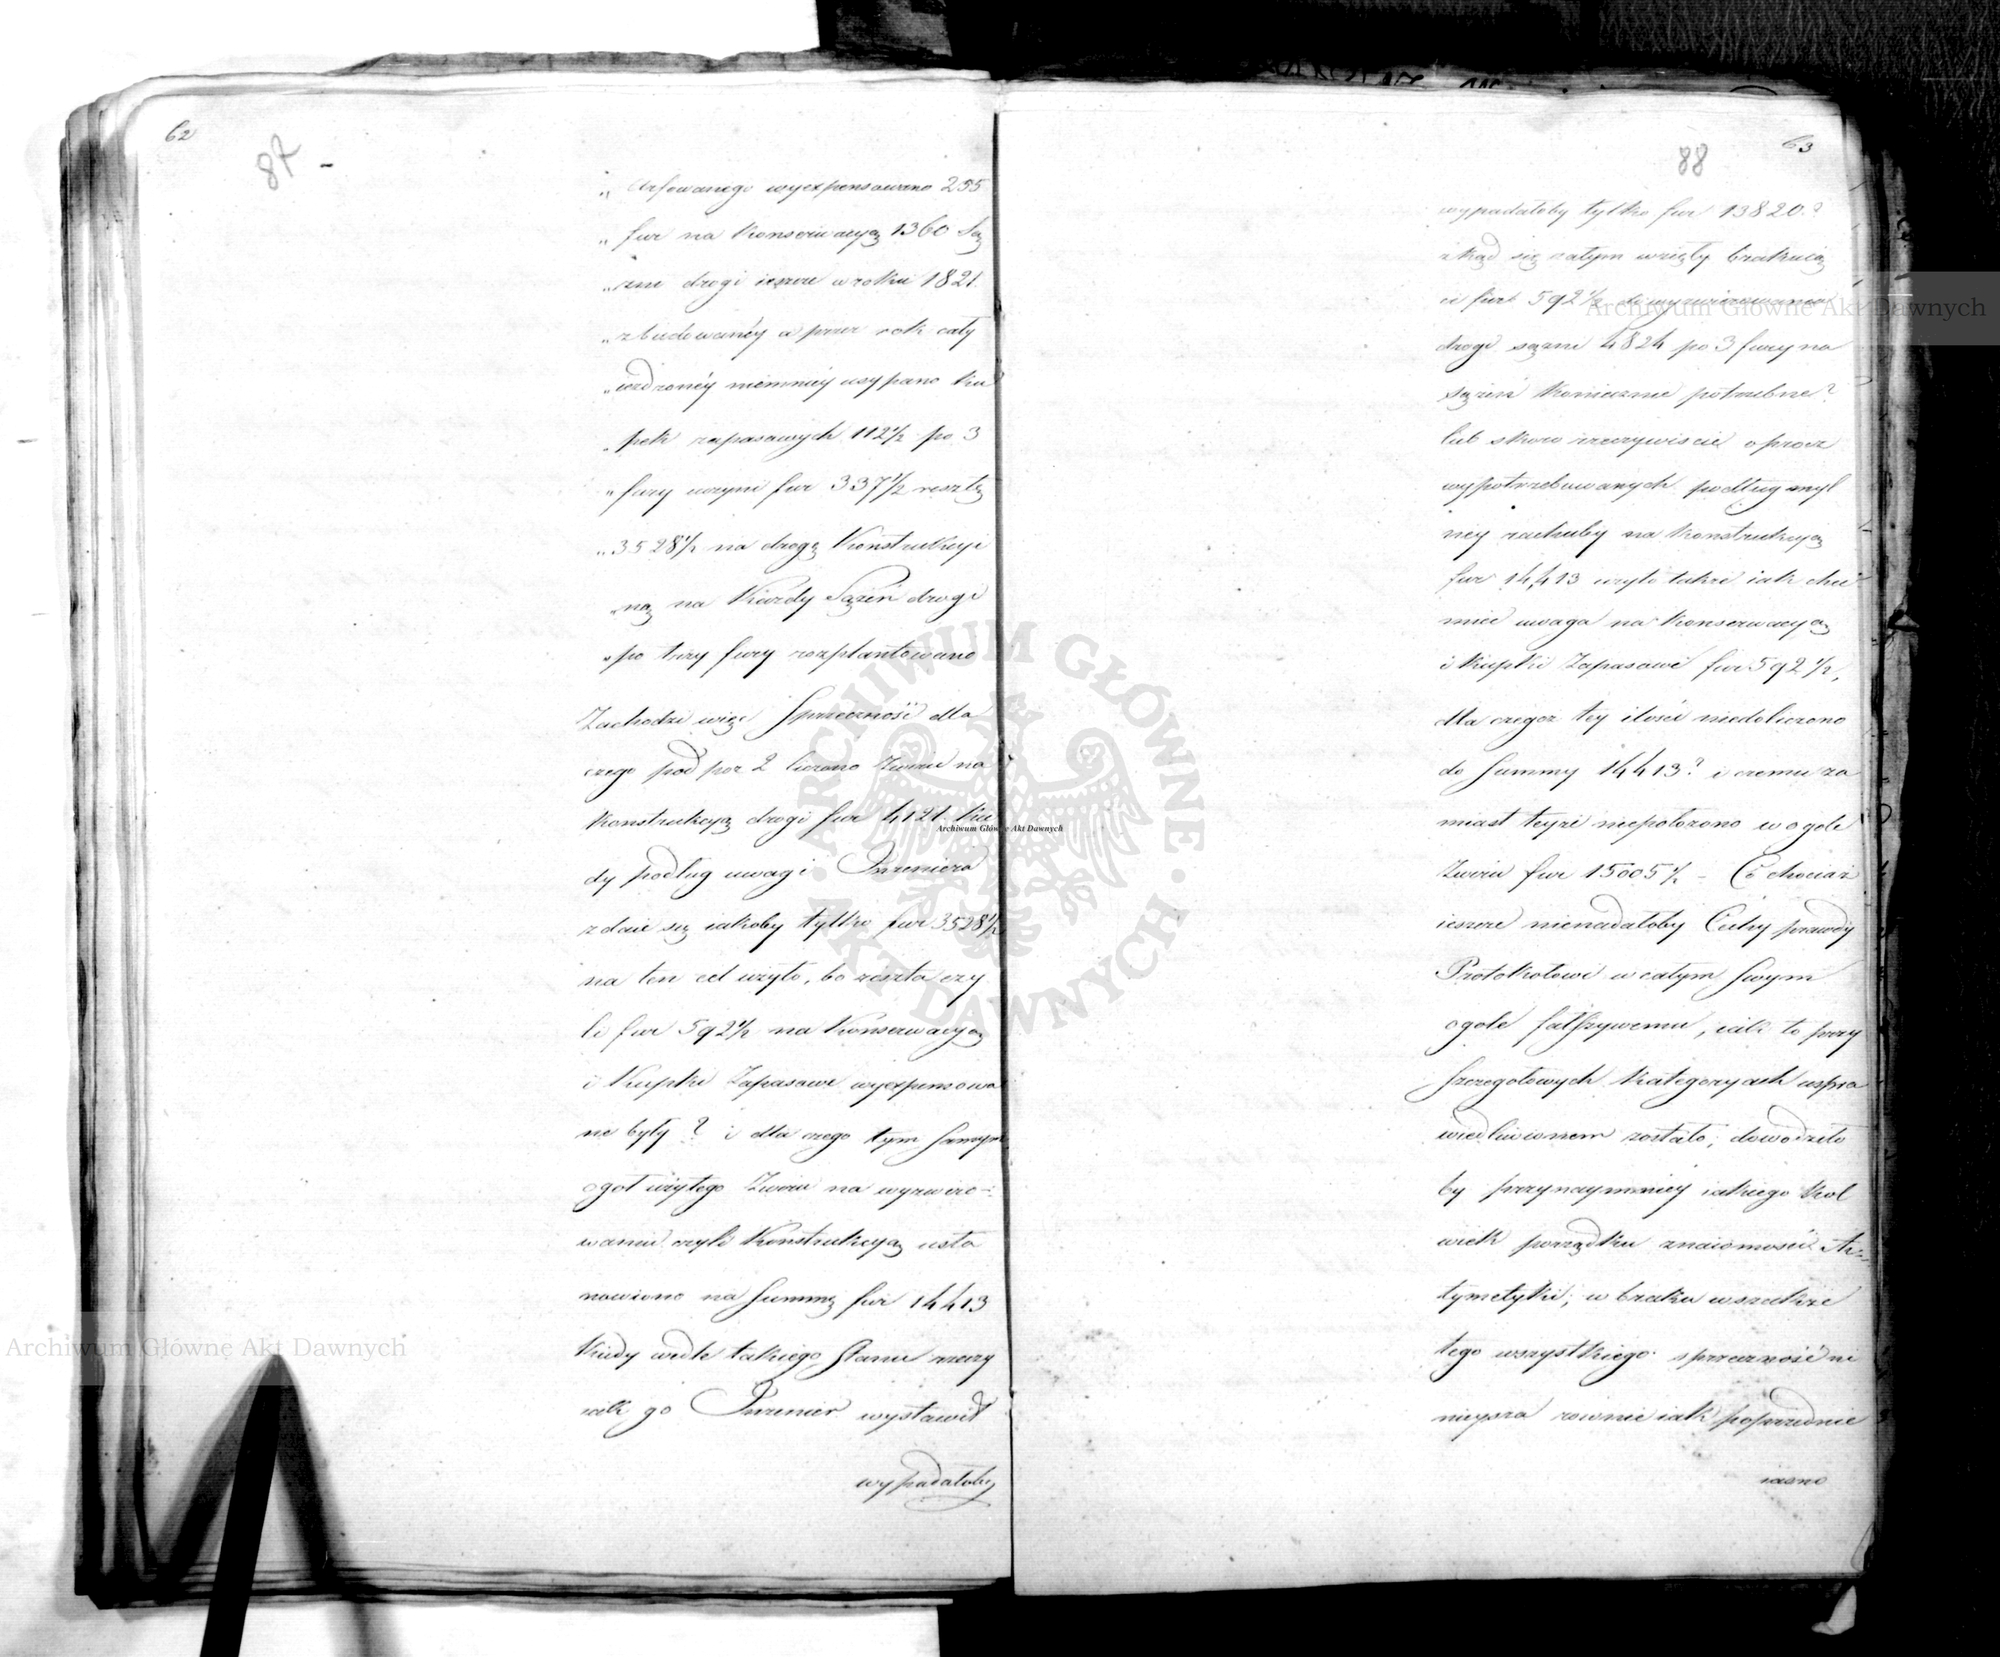 62
87 -
„ Arfowanego wyexpensowano 255
„ fur na Konserwacyą 1360 Są
„ zni drogi ieszcze w roku 1821.
„ zbudowanéy a przez rok cały
„ uzdzonéy niemniéy usypano Ku
„ pek zapasowych 112½ po 3
„ fury uczyni fur 337½ resztę
„ 3528½ na drogę Konstrukcyi
„ ną na Każdy Sążeń drogi
„ po trzy fury rozplantowano
Zachodzi więc Sprzeczność dla
czego pod poz 2 liczono Zwiru na
Konstrukcyą drogi fur 4121. Kie
dy podług uwagi Inzeniera
zdaie się iakoby tylko fur 3528½
na ten cel użyto, bo reszta czy
li fur 592½ na Konserwacyą
i Kupki Zapasowe wyexpensowa
ne były? i dla czego tym samym
ogół użytego Zwiru na wyzwiro-
waniu czyli Konstrukcyą usta
nowiono na Summę fur 14413
Kiedy wedle takiego Stanu rzeczy
iak go Inzenier wystawił
wypadałoby
63
88
wypadałoby tylko fur 13820.?
zkąd się zatym wzięły brakuią
ce fur 592½ do wyzwirowania
drogi sążni 4824 po 3 fury na
sążeń Koniecznie potrzebne?
lub skoro rzeczywiscie oprocz
wypotrzebowanych podług myl
ney rachuby na Konstrukcyą
fur 14,413 uzyto takze iak chce
mieć uwaga na Konserwacyą
i Kupki Zapasowe fur 592½,
dla czegoz tey ilości niedoliczono
do Summy 14413? i czemu za
miast teyze niepołozono w ogole
Zwiru fur 15005½ - Co chociaż
ieszcze nienadałoby Cechy prawdy
Protokołowi w całym Swym
ogole fałszywemu, iak to przy
Szczegołowych Kategoryach uspra
wiedliwionem zostało, dowodziło
by przynaymniey iakiego kol
wiek porządku znaiomości Ar-
tymetyki; w braku wszakze
tego wszystkiego sprzeczność ni
nieysza rownie iak poprzednie
iasno
Archiwum Główne Akt Dawnych
Archiwum Główne Akt Dawnych
Archiwum Główne Akt Dawnych
ARCHIWUM GŁÓWNE · AKT DAWNYCH ·